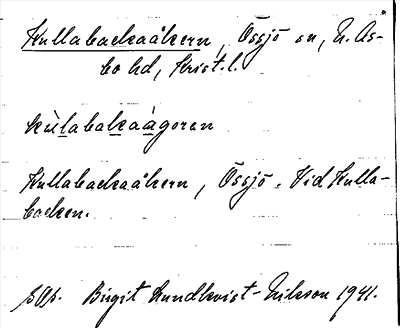 Kullabackaåkern, Össjö sn, N. Ås-
bo hd, Krist. l.
kùlabakaågoren
Kullabackaåkern, Össjö. Vid Kulla-
backen.
Birgit Lundkvist-Nilsson 1941.